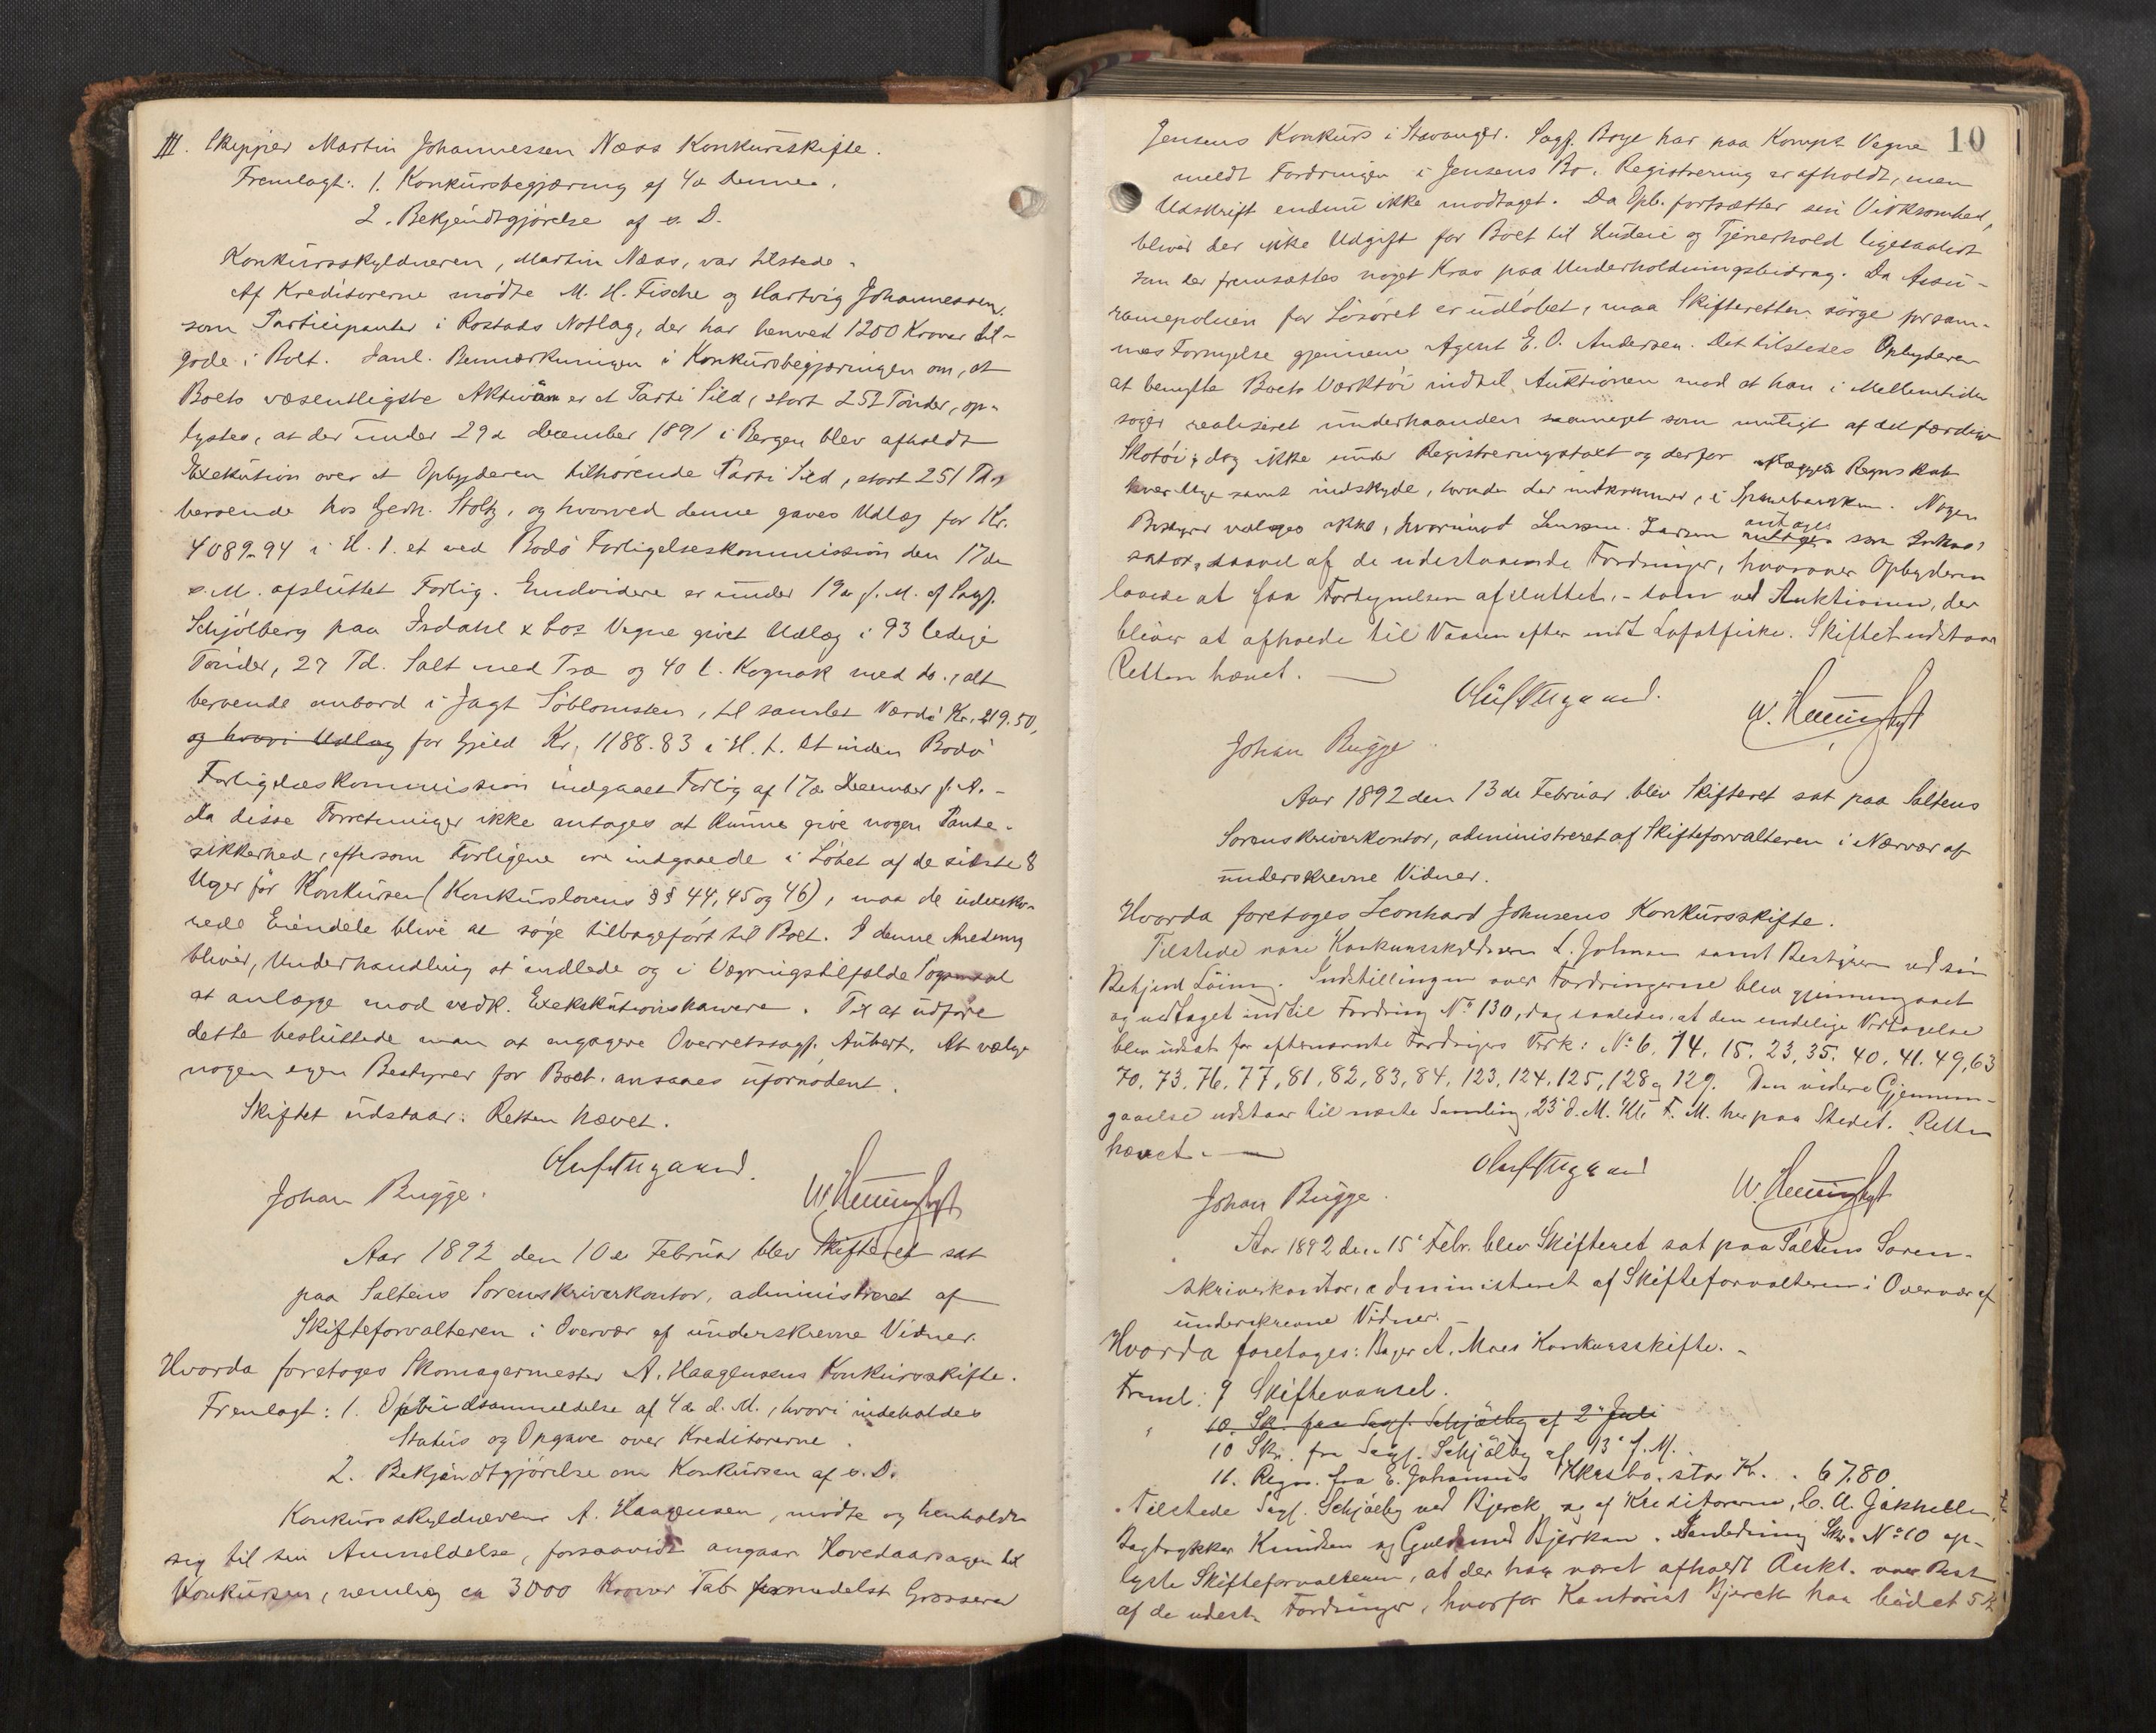 III. Skipper Martin Johannessen Næss Konkursskifte.
Fremlagt: 1. Konkursbegjæring af 4de Dennes.
2. Bekjendtgjørelse af s. D.
Konkursskyldneren, Martin Næss, var tilstede.
Af Kreditorerne mødte M. H. Fische og Hartvig Johannessen,
som Participanter i Rostads Notlag, der har henved 1200 Kroner til-
gode i Boet. Sml. Bemærkningen i Konkursbegjæringen om, at
Boets væsentligste Aktivum er et Parti Sild, stort 252 Tønder, op-
lystes, at der under 29de December 1891 i Bergen blev afholdt
Exekution over et Opbyderen tilhørende Parti Sild, stort 251 Tdr
beroende hos Gerh. Stoltz, og hvorved denne gaves Udlæg for Kr.
4089-94 i H. t. et ved Bodø Forligelseskommission den 17de
s. M. afsluttet Forlig. Endvidere er under 19de f. M. af Sagf.
Schjølberg paa Isdahl & Cos Vegne givet Udlæg i 93 ledige
Tønder, 27 Td. Salt med Træ og 40 l. Kognak med do., alt
beroende ombord i Jagt Søblomsten, til samlet Værdi Kr. 219.50,
og hvori Udlæg for Gjeld Kr. 1188.83 i H. t. et inden Bodø
Forligelseskommission indgaaet Forlig af 17de December f. A. -
Da disse Forretninger ikke antages at kunne give nogen Pante-
sikkerhed, eftersom Forligene ere indgaaede i Løbet af de sidste 8
Uger før Konkursen (Konkurslovens §§ 44, 45 og 46), maa de
Eiendele blive at søge tilbageført til Boet. I denne Anledning
bliver, Underhandling at indlede og i Vægringstilfælde Søgsmaal
at anlægge mod vedk. Exekutionshavere. Til at udføre
dette besluttede man at engagere Overretssagf. Aubert. At vælge
nogen egen Bestyrer for Boet ansaaes ufornødent.
Skiftet udstaar. Retten hævet.
Johan Bugge.
Aar 1892 den 10de Februar blev Skifteret sat
paa Saltens Sorenskriverkontor, administreret af
Skifteforvalteren i Overvær af underskrevne Vidner.
Hvorda foretoges Skomagermester A. Haagensens Konkursskifte.
Fremlagt: 1. Opbudsanmeldelse af 4de d. M., hvori indeholdes
Status og Opgave over Kreditorerne.
2. Bekjendtgjørelse om Konkursen af s. D.
Konkursskyldneren A. Haagensen, mødte og henholdt
sig til sin Anmeldelse, forsaavidt angaar Hovedaarsagen til
Konkursen, nemlig ca 3000 Kroner Tab formedelst Grosserer
10
Jensens Konkurs i Stavanger. Sagf. Boye har paa Komps Vegne
meldt Fordringen i Jensens Bo. Registrering er afholdt, men
Udskrift endnu ikke modtaget. Da Opb. fortsætter sin Virksomhed,
bliver der ikke Udgift for Boet til Husleie og Tjenerhold ligesaalidt
som der fremsættes noget Krav paa Underholdningsbidrag. Da Assu-
rancepolicen for Løsøret er udløbet, maa Skifteretten sørge for sam-
mes Fornyelse gjennem Agent E. O. Andersen. Det tilstedes Opbyderen
at benytte Boets Værktøi indtil Auktionen mod at han i Mellemtiden
søger realiseret underhaanden saameget som muligt af det færdige
Skotøi, dog ikke under Registreringstaxt og derfor aflægger Regnskab
hver Uge samt indskyde, hvad der indkommer, i Sparebanken. Nogen
Bestyrer vælges ikke, hvorimod Lensm. Larsen antages som Inkas-
sator, saavel af de udestaaende Fordringer, hvorover Opbyderen
lovede at faa Fortegnelsen afsluttet, - som ved Auktionen, der
bliver at afholde til Vaaren efter endt Lofotfiske. Skiftet udstaar
Retten hævet.
Johan Bugge
Aar 1892 den 13de Februar blev Skifteret sat paa Saltens
Sorenskriverkontor, administreret af Skifteforvalteren i Nærvær af
underskrevne Vidner.
Hvorda foretoges Leonhard Johnsens Konkursskifte.
Tilstede vare Konkursskyldneren L. Johnsen samt Bestyreren ved sin
Betjent Løining. Indstillingen over Fordringerne blev gjennemgaaet
og vedtaget indtil Fordring No 130, dog saaledes, at den endelige Vedtagelse
blev udsat for efternævnte Fordringers Vedk: No 6. 14. 15. 23. 35. 40. 41. 49, 63
70. 73. 76. 77, 81, 82, 83, 84, 123, 124, 125, 128 og 129. Den videre Gjennem-
gaaelse udstaar til næste Samling, 23' d. M. Kl. F. M. her paa Stedet. Retten
hævet.
Johan Bugge.
Aar 1892 den 15' Febr. blev Skifteret sat paa Saltens Soren-
skriverkontor, administreret af Skifteforvalteren i Overvær af
underskrevne Vidner.
Hvorda foretoges: Bager A. Moes Konkursskifte. -
Freml: 9 Skiftevarsel.
10. Sk. fra Sagf. Schjølbg af 2' Juli
10 Skr. fra Sagf. Schjølbg af 13' f. M.
11. Regn. fra E. Johannes Kkrsbo. stor Kr. . 67.80.
Tilstede Sagf. Schjølbg ved Bjerck og af Kreditorerne, C. A. Jakhelln,
Bogtrykker Knudsen og Guldsmed Bjerkan. I Anledning Skr. No 10 op-
lyste Skifteforvalteren, at der har været afholdt Aukt. over Rest
af de udest. Fordringer, hvorfor Kontorist Bjerck har budt et 5 K